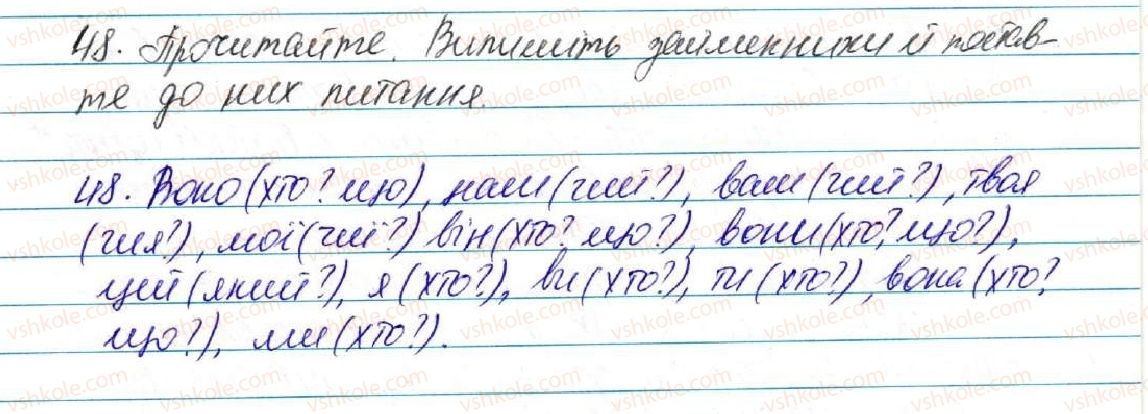 48. Прочитайте. Випишіть займенники й постав-
те до них питання.
48. Воно (хто? що), наш (чий?), ваш (чий?), твоя
(чия?), мої (чиї?) він (хто? що?), вони (хто? що?),
цей (який?), я (хто?), ви (хто?), ти (хто?), вона (хто?
що?), ми (хто?).